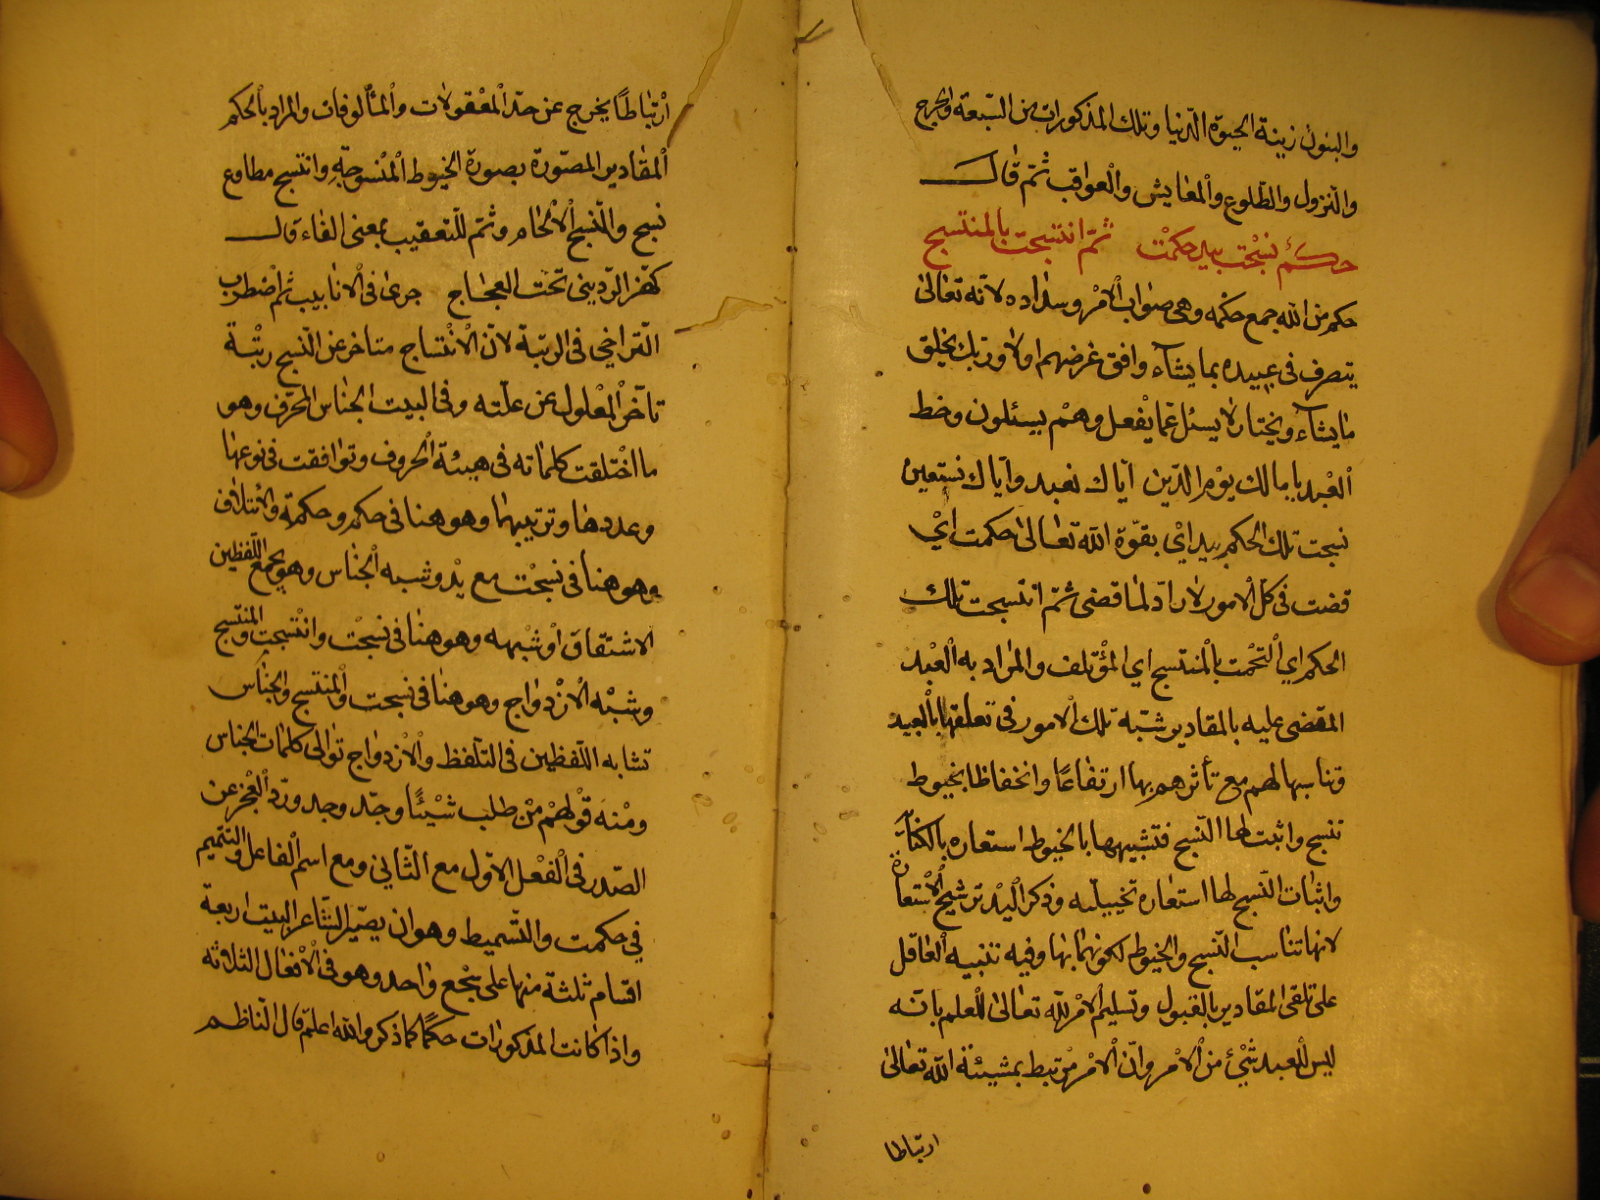 والبنون زينة الحيوة الدنيا وتلك المذكورات من السبعة والحرج
والنزول والطلوع والمعايش والعواقب ثم قال
حكم نسجت بيد حكمت ثم انتسجت بالمنتسج
حكم من الله جمع حكمه وهى صواب الامر وسداده لانه تعالى
يتصرف فى عبيده بما يشآء وافق غرضهم اولا وربك يخلق
ما يشآء ويختار لا يسئل عما يفعل وهم يسئلون وحظ
العبد يا مالك يوم الدين اياك نعبد واياك نستعين
نسجت تلك الحكم بيد اي بقوة الله تعالى حكمت اي
قضت فى كل الامور لا راد لما قضى ثم انتسجت تلك
الحكم اي التحمت بالمنتسج اي المؤتلف والمراد به العبد
المقضى عليه بالمقادير شبه تلك الامور فى تعلقها بالعبيد
وتناسبها لهم مع تأثرهم بها ارتفاعا وانخفاظا بخيوط
تنسج واثبت لها النسج فتشبيهها بالخيوط استعاره بالكناية
واثبات النسج لها استعاره تخييليه وذكر اليد ترشيح الاستعارة
لانها تناسب النسج والخيوط لكونهما بها وفيه تنبيه العاقل
على تلقى المقادير بالقبول وتسليم الامر لله تعالى للعلم بانه
ليس للعبد شئ من الامر وان الامر مرتبط بمشيئة الله تعالى
ارتباطا
ارتباطا يخرج عن حد المعقولات والمألوفات والمراد بالحكم
المقادير المصورة بصورة الخيوط المنسوجة وانتسج مطاوع
نسج والنسج الالحام وثم للتعقيب بمعنى الفاء قال
كهز الردينى تحت العجاج جرى فى الانابيب ثم اضطرب
التراخي فى الرتبة لان الانتساج متاخر عن النسج رتبة
تاخر المعلول عن علته وفى البيت الجناس المحرف وهو
ما اختلفت كلماته فى هيئة الحروف وتوافقت فى نوعها
وعددها وترتيبها وهو هنا فى حكم وحكمة والائتلاف
وهو هنا فى نسجت مع يد وشبه الجناس وهو يجمع اللفظين
الاشتقاق او شبهه وهو هنا فى نسجت وانتسجت والمنتسج
وشبه الازدواج وهو هنا فى نسجت والمنتسج والجناس
تشابه اللفظين فى التلفظ والازدواج توالى كلمات الجناس
ومنه قولهم من طلب شيئا وجد وجد ورد العجز عن
الصدر فى الفعل الاول مع الثاني ومع اسم الفاعل والتتميم
في حكمت والتسميط وهو ان يصير الشاعر البيت اربعة
اقسام ثلثة منها على سجع واحد وهو فى الافعال الثلاثه
واذا كانت المذكورات حكما كما ذكر والله اعلم قال الناظم